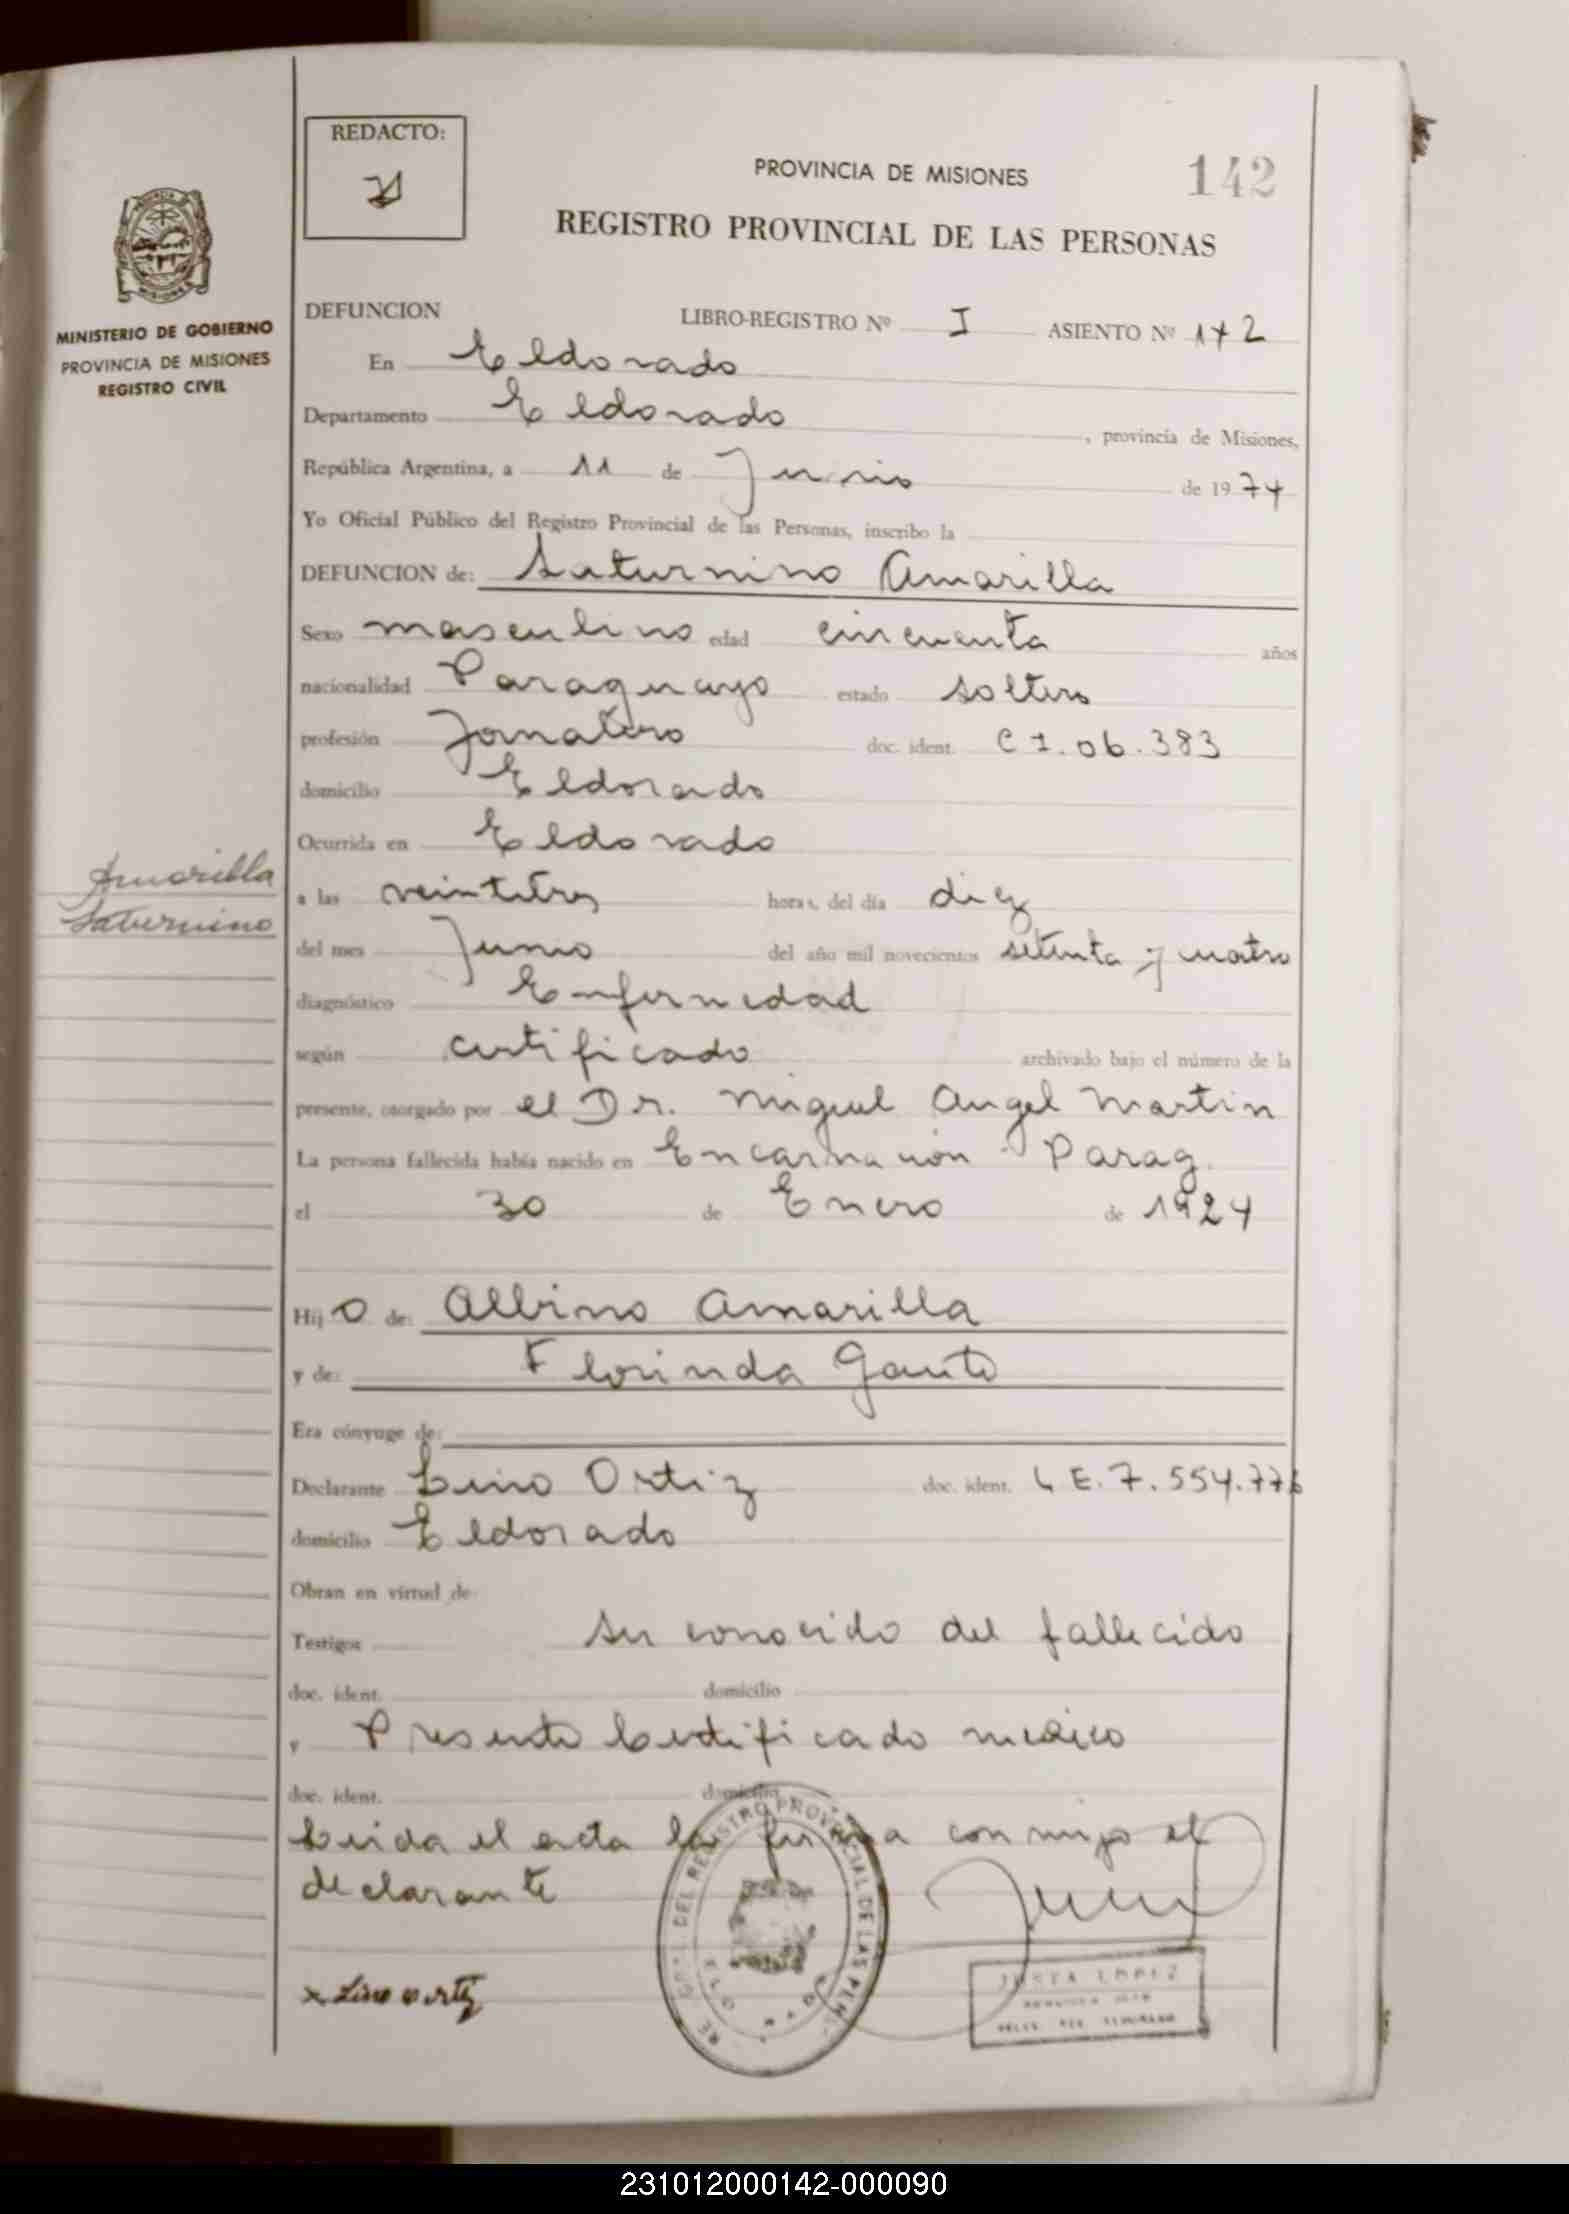 REDACTO:
PROVINCIA DE MISIONES
142
REGISTRO PROVINCIAL DE LAS PERSONAS
MINISTERIO DE GOBIERNO
PROVINCIA DE MISIONES
REGISTRO CIVIL
DEFUNCION LIBRO-REGISTRO Nº I ASIENTO Nº 142
En Eldorado
Departamento Eldorado, provincia de Misiones,
República Argentina, a 11 de Junio de 1974
Yo Oficial Público del Registro Provincial de las Personas, inscribo la
DEFUNCION de: Saturnino Amarilla
Sexo masculino edad cincuenta años
nacionalidad Paraguayo estado soltero
profesión Jornalero doc. ident. C I. 06.383
domicilio Eldorado
Ocurrida en Eldorado
Amarilla
Saturnino
a las veintitres horas, del día diez
del mes Junio del año mil novecientos setenta y cuatro
diagnóstico Enfermedad
según certificado archivado bajo el número de la
presente, otorgado por el Dr. Miguel Angel Martin
La persona fallecida había nacido en Encarnación - Parag.
el 30 de Enero de 1924
Hijo de: Albino Amarilla
y de: Florinda Gaute
Era cónyuge de:
Declarante Lino Ortiz doc. ident. L E. 7.554.776
domicilio Eldorado
Obran en virtud de
Testigos ser conocido del fallecido
doc. ident. domicilio
y Presento Certificado medico
doc. ident. domicilio
Leida el acta la firma conmigo el
declarante
x Lino Ortiz
DEL REGISTRO PROVINCIAL DE LAS PERS
JUSTA LOPEZ
231012000142-000090